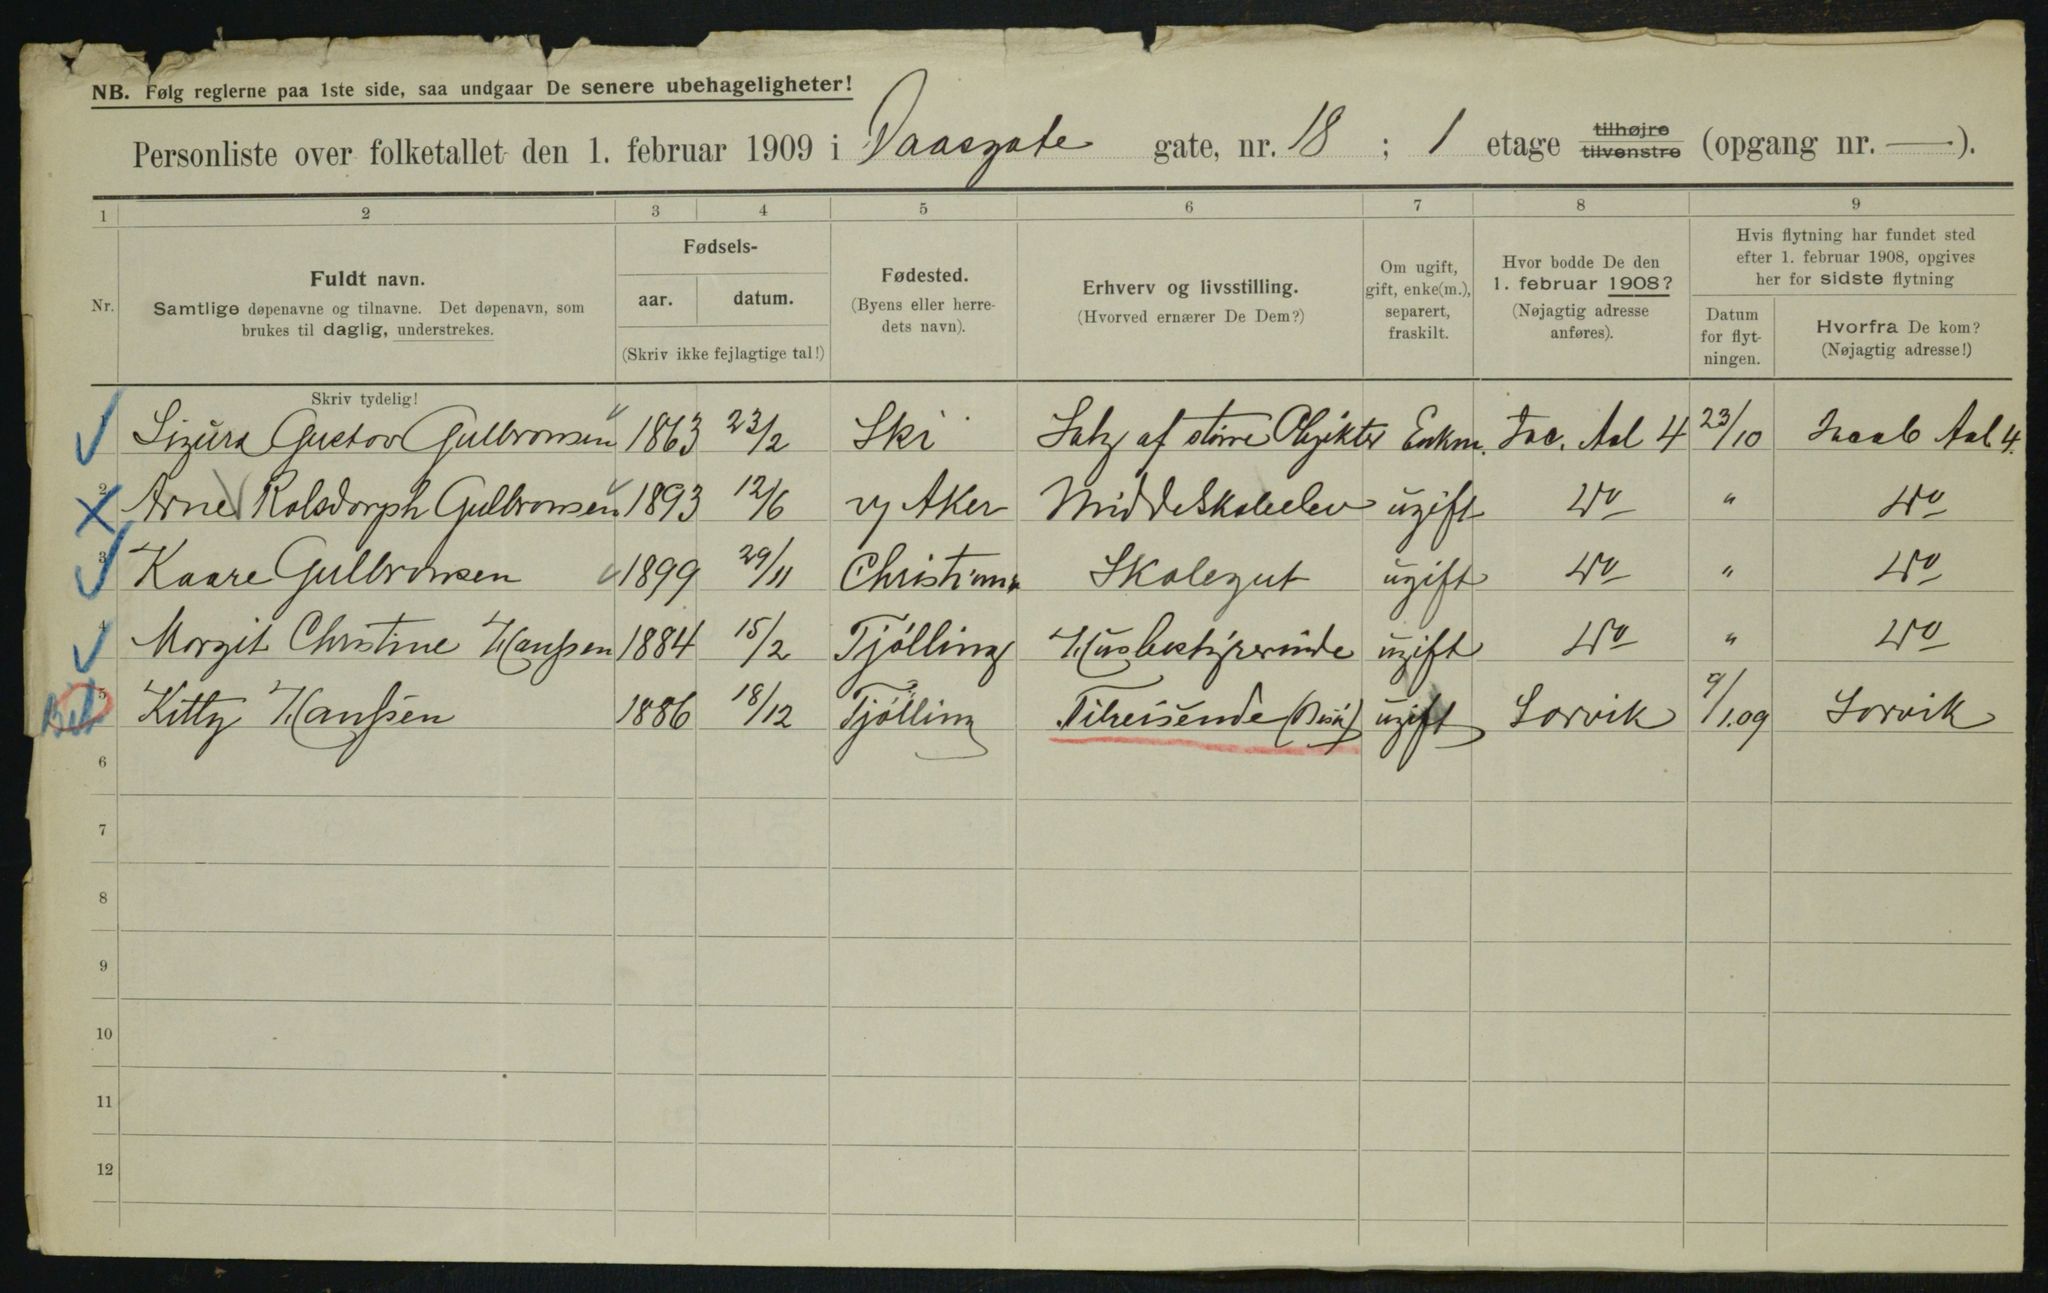 NB. Følg reglerne paa 1ste side, saa undgaar De senere ubehageligheter!
Personliste over folketallet den 1. februar 1909 i Daasgate gate, nr. 18 ; 1 etage tilhøjre tilvenstre (opgang nr. — ).
1 2 3 4 5 6 7 8 9
Nr.
Fuldt navn.
Samtlige døpenavne og tilnavne. Det døpenavn, som
brukes til daglig, understrekes.
Fødsels-
aar. datum.
(Skriv ikke fejlagtige tal!)
Fødested.
(Byens eller herre-
dets navn).
Erhverv og livsstilling.
(Hvorved ernærer De Dem?)
Om ugift,
gift, enke(m.),
separert,
fraskilt.
Hvor bodde De den
1. februar 1908?
(Nøjagtig adresse
anføres).
Hvis flytning har fundet sted
efter 1. februar 1908, opgives
her for sidste flytning
Datum
for flyt-
ningen.
Hvorfra De kom?
(Nøjagtig adresse!)
Skriv tydelig!
Sigurd Gustav Gulbransen 1863 23/2 Ski Salg af större Objekter Enkm. Jac. Aal 4 23/10 Jacob Aal 4.
2 Arne Rolsdorph Gulbransen 1893 12/6 V Aker Middelskoleelev ugift Do " Do
3 Kaare Gulbransen 1899 29/11 Christiania Skolegut ugift Do " Do
4 Margit Christine Hanssen 1884 15/2 Tjölling Husbestyrerinde ugift Do " Do
5 Kitty Hanssen 1886 18/12 Tjölling Tilreisende (Besög) ugift Larvik 9/1.09 Larvik
6
7
8
9
10
11
12